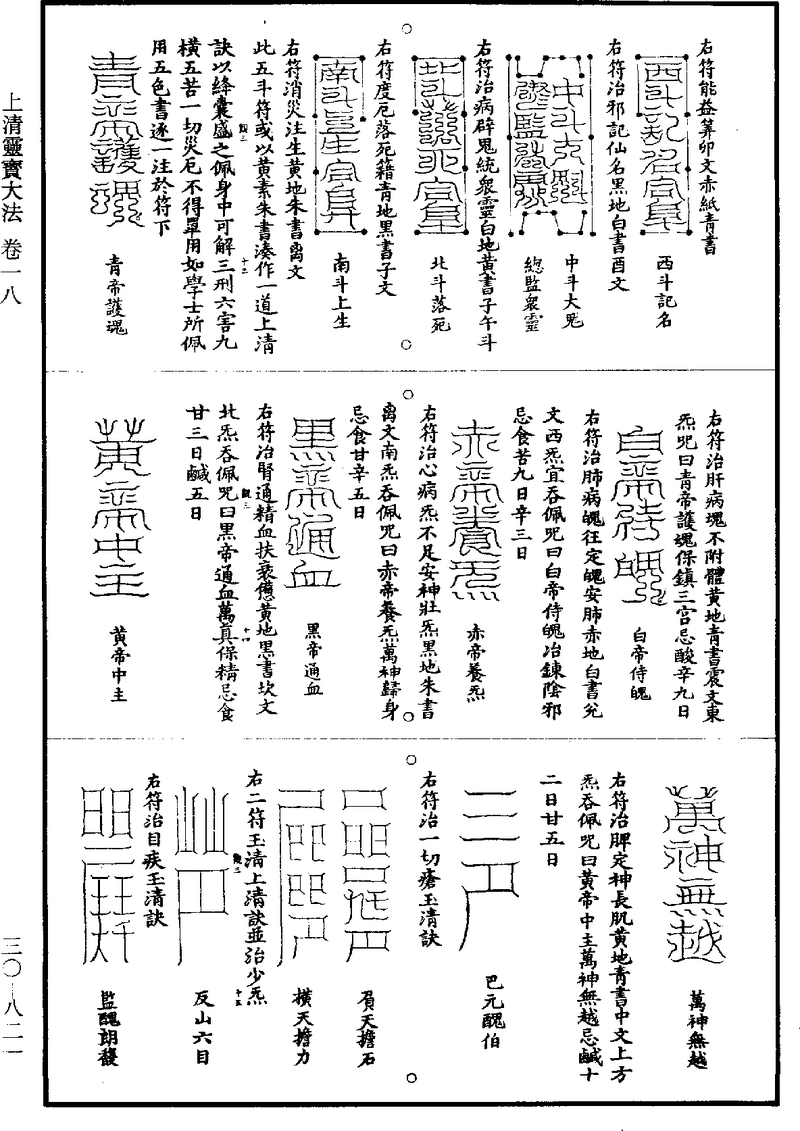 上清靈寶大法 卷一八
三〇—八二一
右符能益筭卯文赤紙青書
西斗記名
右符治邪記仙名黑地白書酉文
中斗大魁
總監衆靈
右符治病辟鬼統衆靈白地黃書子午斗
北斗落死
右符度厄落死籍青地黑書子文
南斗上生
右符消災注生黃地朱書离文
此五斗符或以黃素朱書湊作一道上清
訣以絳囊盛之佩身中可解三刑六害九
橫五苦一切災厄不得單用如學士所佩
用五色書逐一注於符下
青帝護魂
右符治肝病魂不附體黃地青書震文東
炁咒曰青帝護魂保鎮三宮忌酸辛九日
白帝侍魄
右符治肺病魄往定魄安肺赤地白書兊
文西炁宜吞佩咒曰白帝侍魄冶鍊陰邪
忌食苦九日辛三日
赤帝養炁
右符治心病炁不足安神壯炁黑地朱書
离文南炁吞佩咒曰赤帝養炁萬神歸身
忌食甘辛五日
黑帝通血
右符治腎通精血扶衰憊黃地黑書坎文
北炁吞佩咒曰黑帝通血萬真保精忌食
甘三日鹹五日
黃帝中主
萬神無越
右符治脾定神長肌黃地青書中文上方
炁吞佩咒曰黃帝中主萬神無越忌鹹十
二日甘五日
巴元醜伯
右符治一切瘡玉清訣
負天擔石
橫天擔力
右二符玉清上清訣並治少炁
反山六目
右符治目疾玉清訣
監醜朗馥